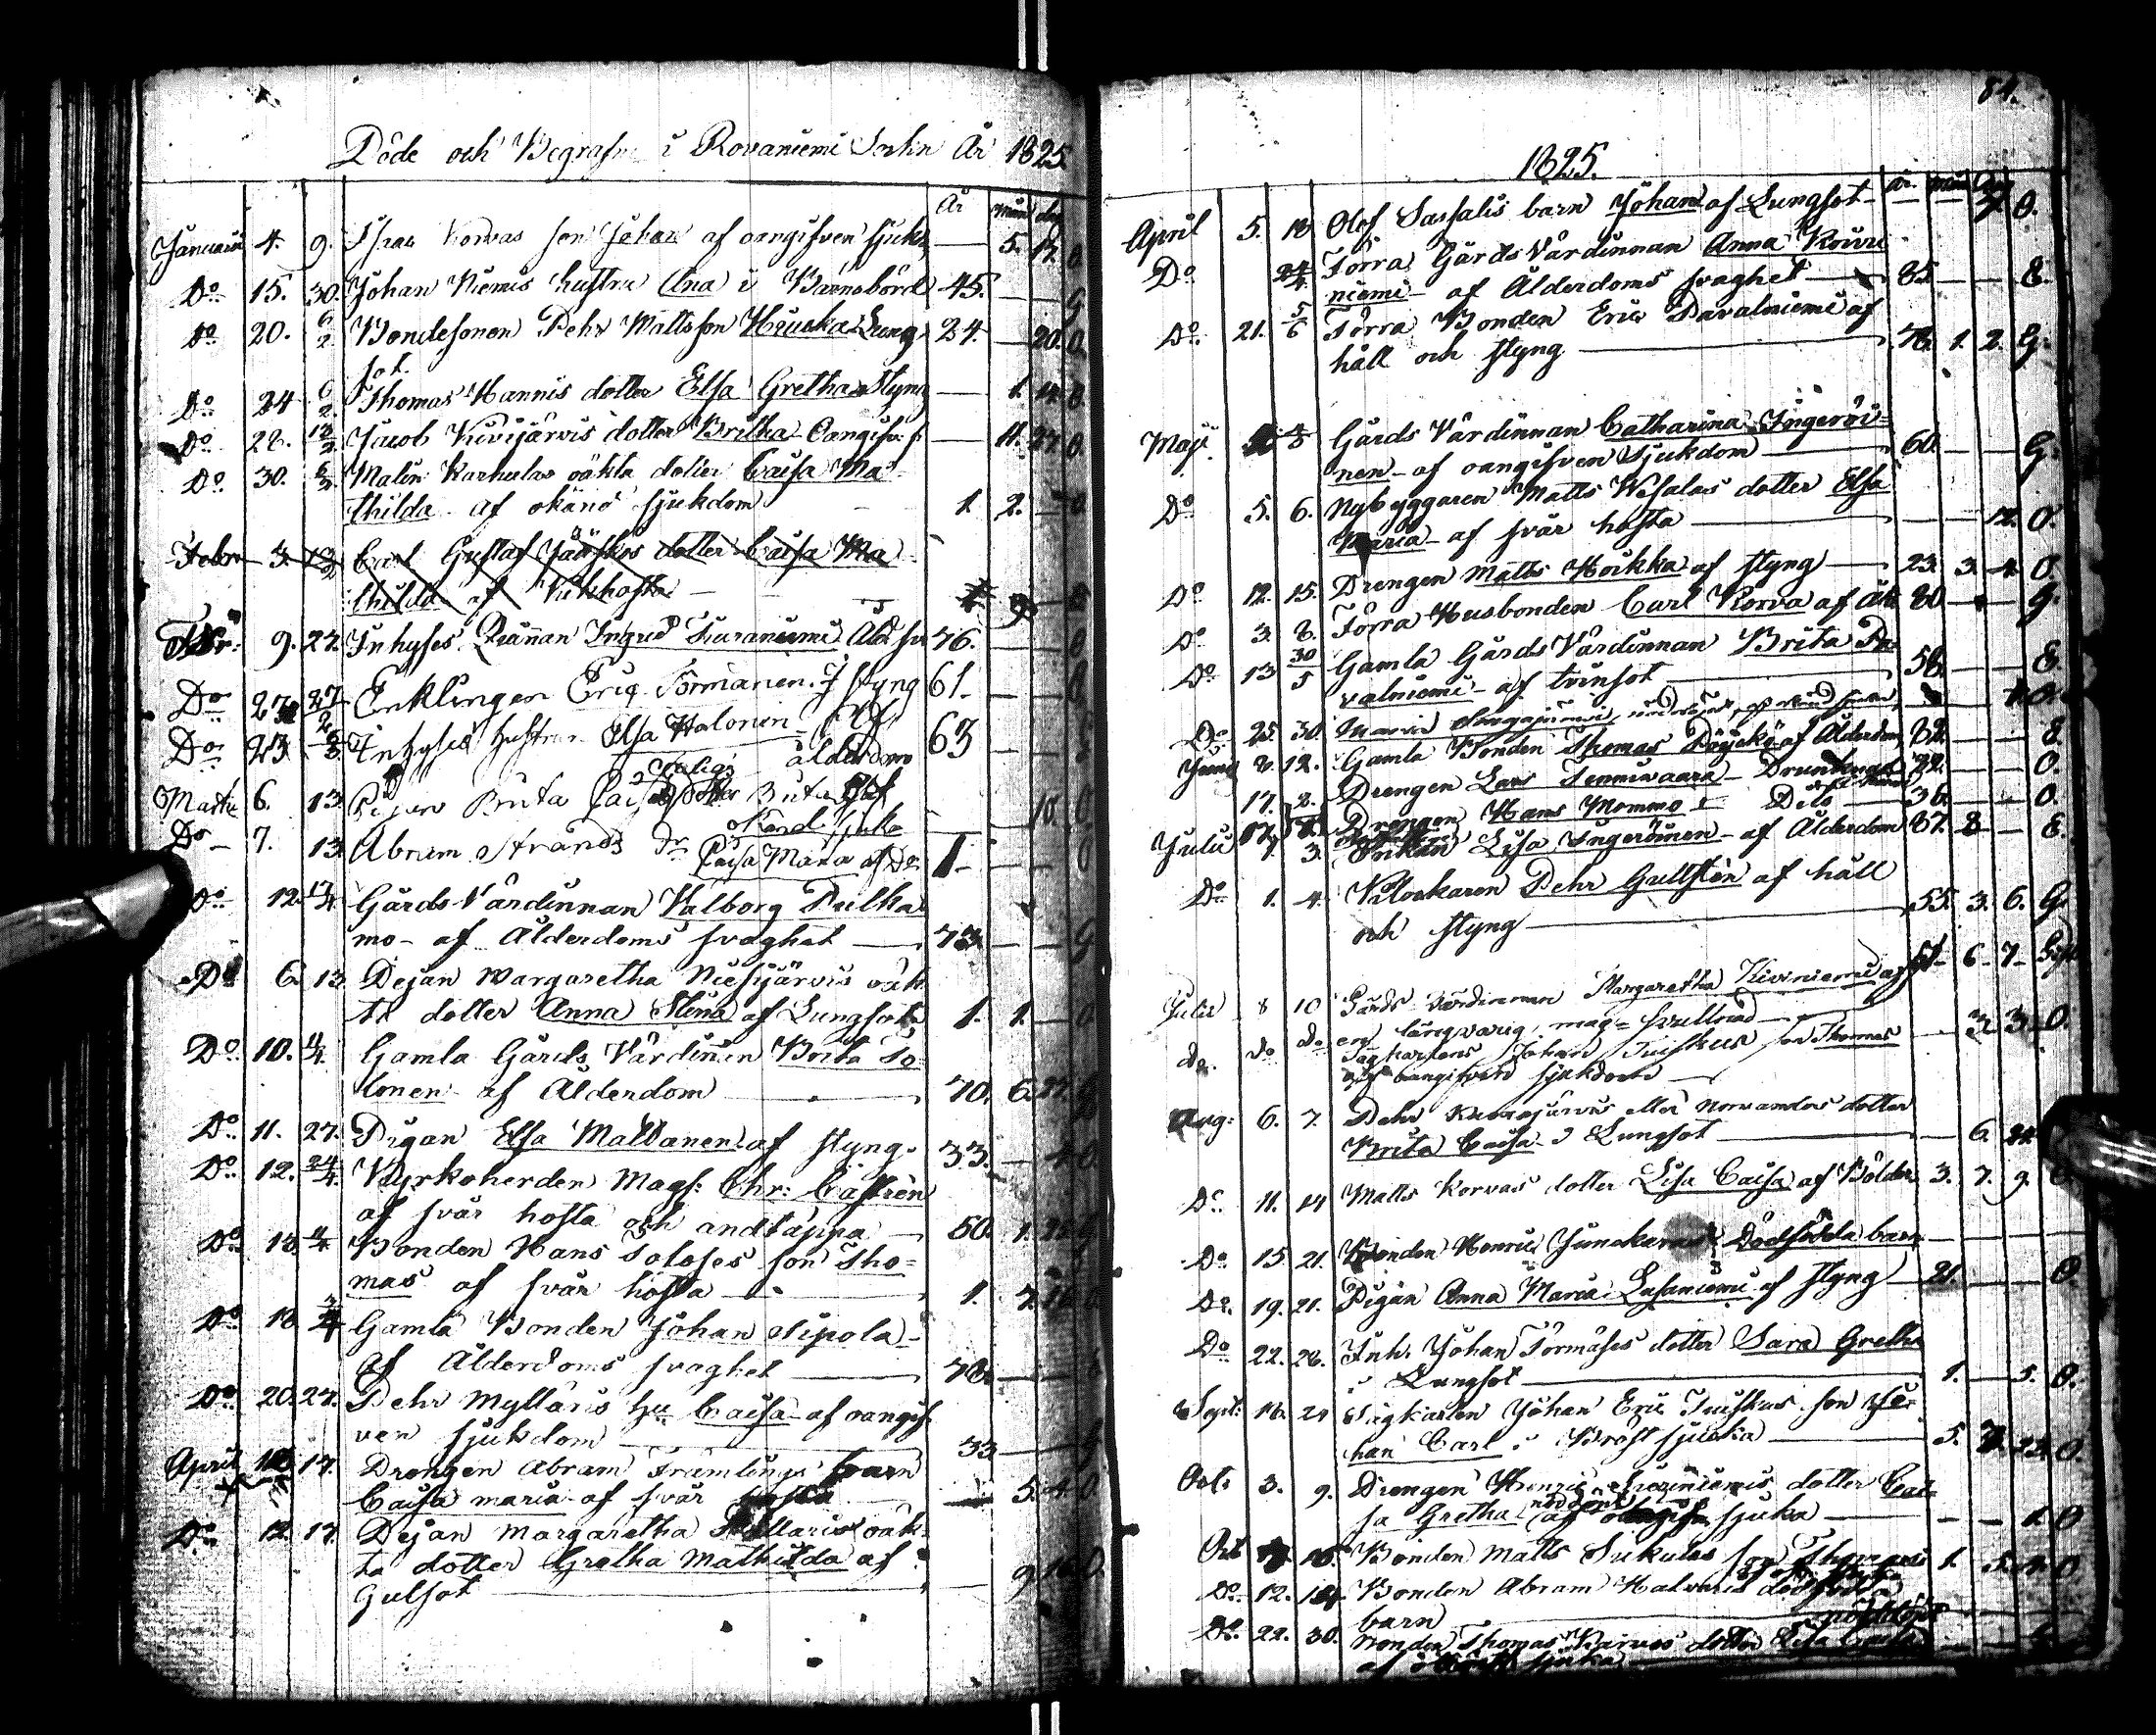 Döde och Begrafne i Rovaniemi Sockn År 1825
År mån dag
Januarii 4. 9. Isac Korvas son Johan af oangifven sjukd — 5. 17. O
Do 15. 30. Johan Niemis hustru Ana i Barnsbörd 45. — — G
Do 20. 6/2 Bondesonen Pehr Mattsson Hiuska Lung- 24. — 20. O.
sot.
Do 24 6/2. Thomas Hannis dotter Elsa Gretha Styng — 1. 14. O.
Do 28. 13/2 Jacob Kivijärvis dotter Britha Oangifv. s — 11. 27. O.
Do 30. 6/2. Malin Karhulas oäkta dotter Caisa Ma-
thilda af okänd sjukdom 1. 2. — O
Febr 3. 13/2 Carl Gustaf Jääskös dotter Caisa Ma
thilda af Kikhosta
9. 27. Inhyses Qvinnan Ingrid 76.
Do 27 27 Enklingen Eriq Törmänen. af styng 61 —
Do 23 Inhyses hustru Elsa Halonen Af 63 —
ålderdom
Martii 6. 13. Pigan Brita Caisa 10. O.
okänd sjuka
Do 7. 13 Abram Strands dr Caisa Maria af Do 1 — — O
Do 12. 17/4 Gårds Värdinnan Valborg Pulka
mo — af Ålderdoms svaghet — 73. — — G
Do 6. 13 Pejan Margaretha Niesijärvis oäk
ta dotter Anna Stina af Lungsot 1. 1. — O
Do 10. 11/4 Gamla Gårds Värdinnen Brita To-
lonen af Ålderdom 70. 6. 27.
Do 11. 27. Pigan Elsa Maldanen af styng. 33. —
Do 12. 24/4. Kyrkoherden Mags: Chr: Castrén
af svår hosta och andtäppa — 50. 1.
Do 13. Bonden Hans Toloses son Tho-
mas af svår hosta — 1. 7.
Do 18. Gamla Bonden Johan Sipola —
af Ålderdoms svaghet — 78.
Do 20. 27. Pehr Myllaris hu Caisa — af oangif-
ven sjukdom — 33 —
April 17. Drengen Abram Främlings barn
Caisa Maria af svår hosta — 5. 4. O.
Do 12. 17. Pejan Margaretha oäk-
ta dotter Gretha Mathilda af
Gulsot — 9 16 O.
84.
1825.
år. mån dag
April 5. 10 Olof Sassalis barn Johan af Lungsot — — — 7. O.
Do 24/4 Förra Gårds Värdinnan Anna Koivu
niemi — af Ålderdoms svaghet — 85. — — E.
Do 21. 5/6 Förra Bonden Eric Pavalniemi af
håll och styng — 76. 1. 2. G.
Maji Gårds Värdinnan Catharina Ingeröi-
nen — af oangifven Sjukdom — 60. — — G.
Do 5. 6. Nybyggaren Matts Wesalas dotter Elsa
Maria — af svår hosta — — — 12. O.
Do 12. 15. Drengen Matts Hoikka af styng — 23. 3. 4. O.
Do 3. 8. Förra Husbonden Carl Korva af Åld 80 — — G.
Do 13 30/5 Gamla Gårds Värdinnan Brita Pa-
valniemi — af tvinsot — 58. — — E.
Do 25. 30. Maria
Junii 8. 12. Gamla Bonden Thomas Pöyskö af Ålderdom 82. — — E.
17. Drengen Lars Tennivaara — Drunknat 22. — — O.
Drengen Hans Mommo — Dito — 36. — — O.
Julii 1. 3. Enkan Lisa Ingeröinen — af Ålderdom 87. 8 — E.
Do 1. 4. Klockaren Pehr Gullstén af håll
och styng — 55. 3. 6. G.
Julii 8 10 Gårds Värdinnan Margaretha Kiviniemi af 51 — 6 — 7 — Gift
en långvarig mag-svullnad
do. do do Johan Tuiskus son Thomas 3. O
af oangifven sjukdom —
Aug: 6. 7. Pehr Kursjärvis eller Norvandos dotter
Brita Caisa i Lungsot — 6. 24.
Do 11. 14 Matts Korvas dotter Lisa Caisa af Bölder 3. 7. 9. O.
Do 15 21. Bonden Henric Junskaras Dödfödda barn
Do. 19. 21. Pigan Anna Maria Lusaniemi af styng — 21. — — O.
Do 22. 28. Inh. Johan Törmäses dotter Sara Gretha
i Lungsot — 1. — 5. O.
Sept: 18. 24 Johan Eric Tuiskus son Jo-
han Carl i Bröstsjuka — 5. 23. O.
Oct: 3. 9. Drengen Henric dotter Cai-
sa Gretha af sjuka — — — 1. O
Oct Bonden Matts Sukulas son Thomas 1. 5. 4. O
Do. 12. Bonden Abram Halvaris dödfödda
barn
Do. 22. 30. Bonden Thomas Karvos dotter Lisa
af sjuka